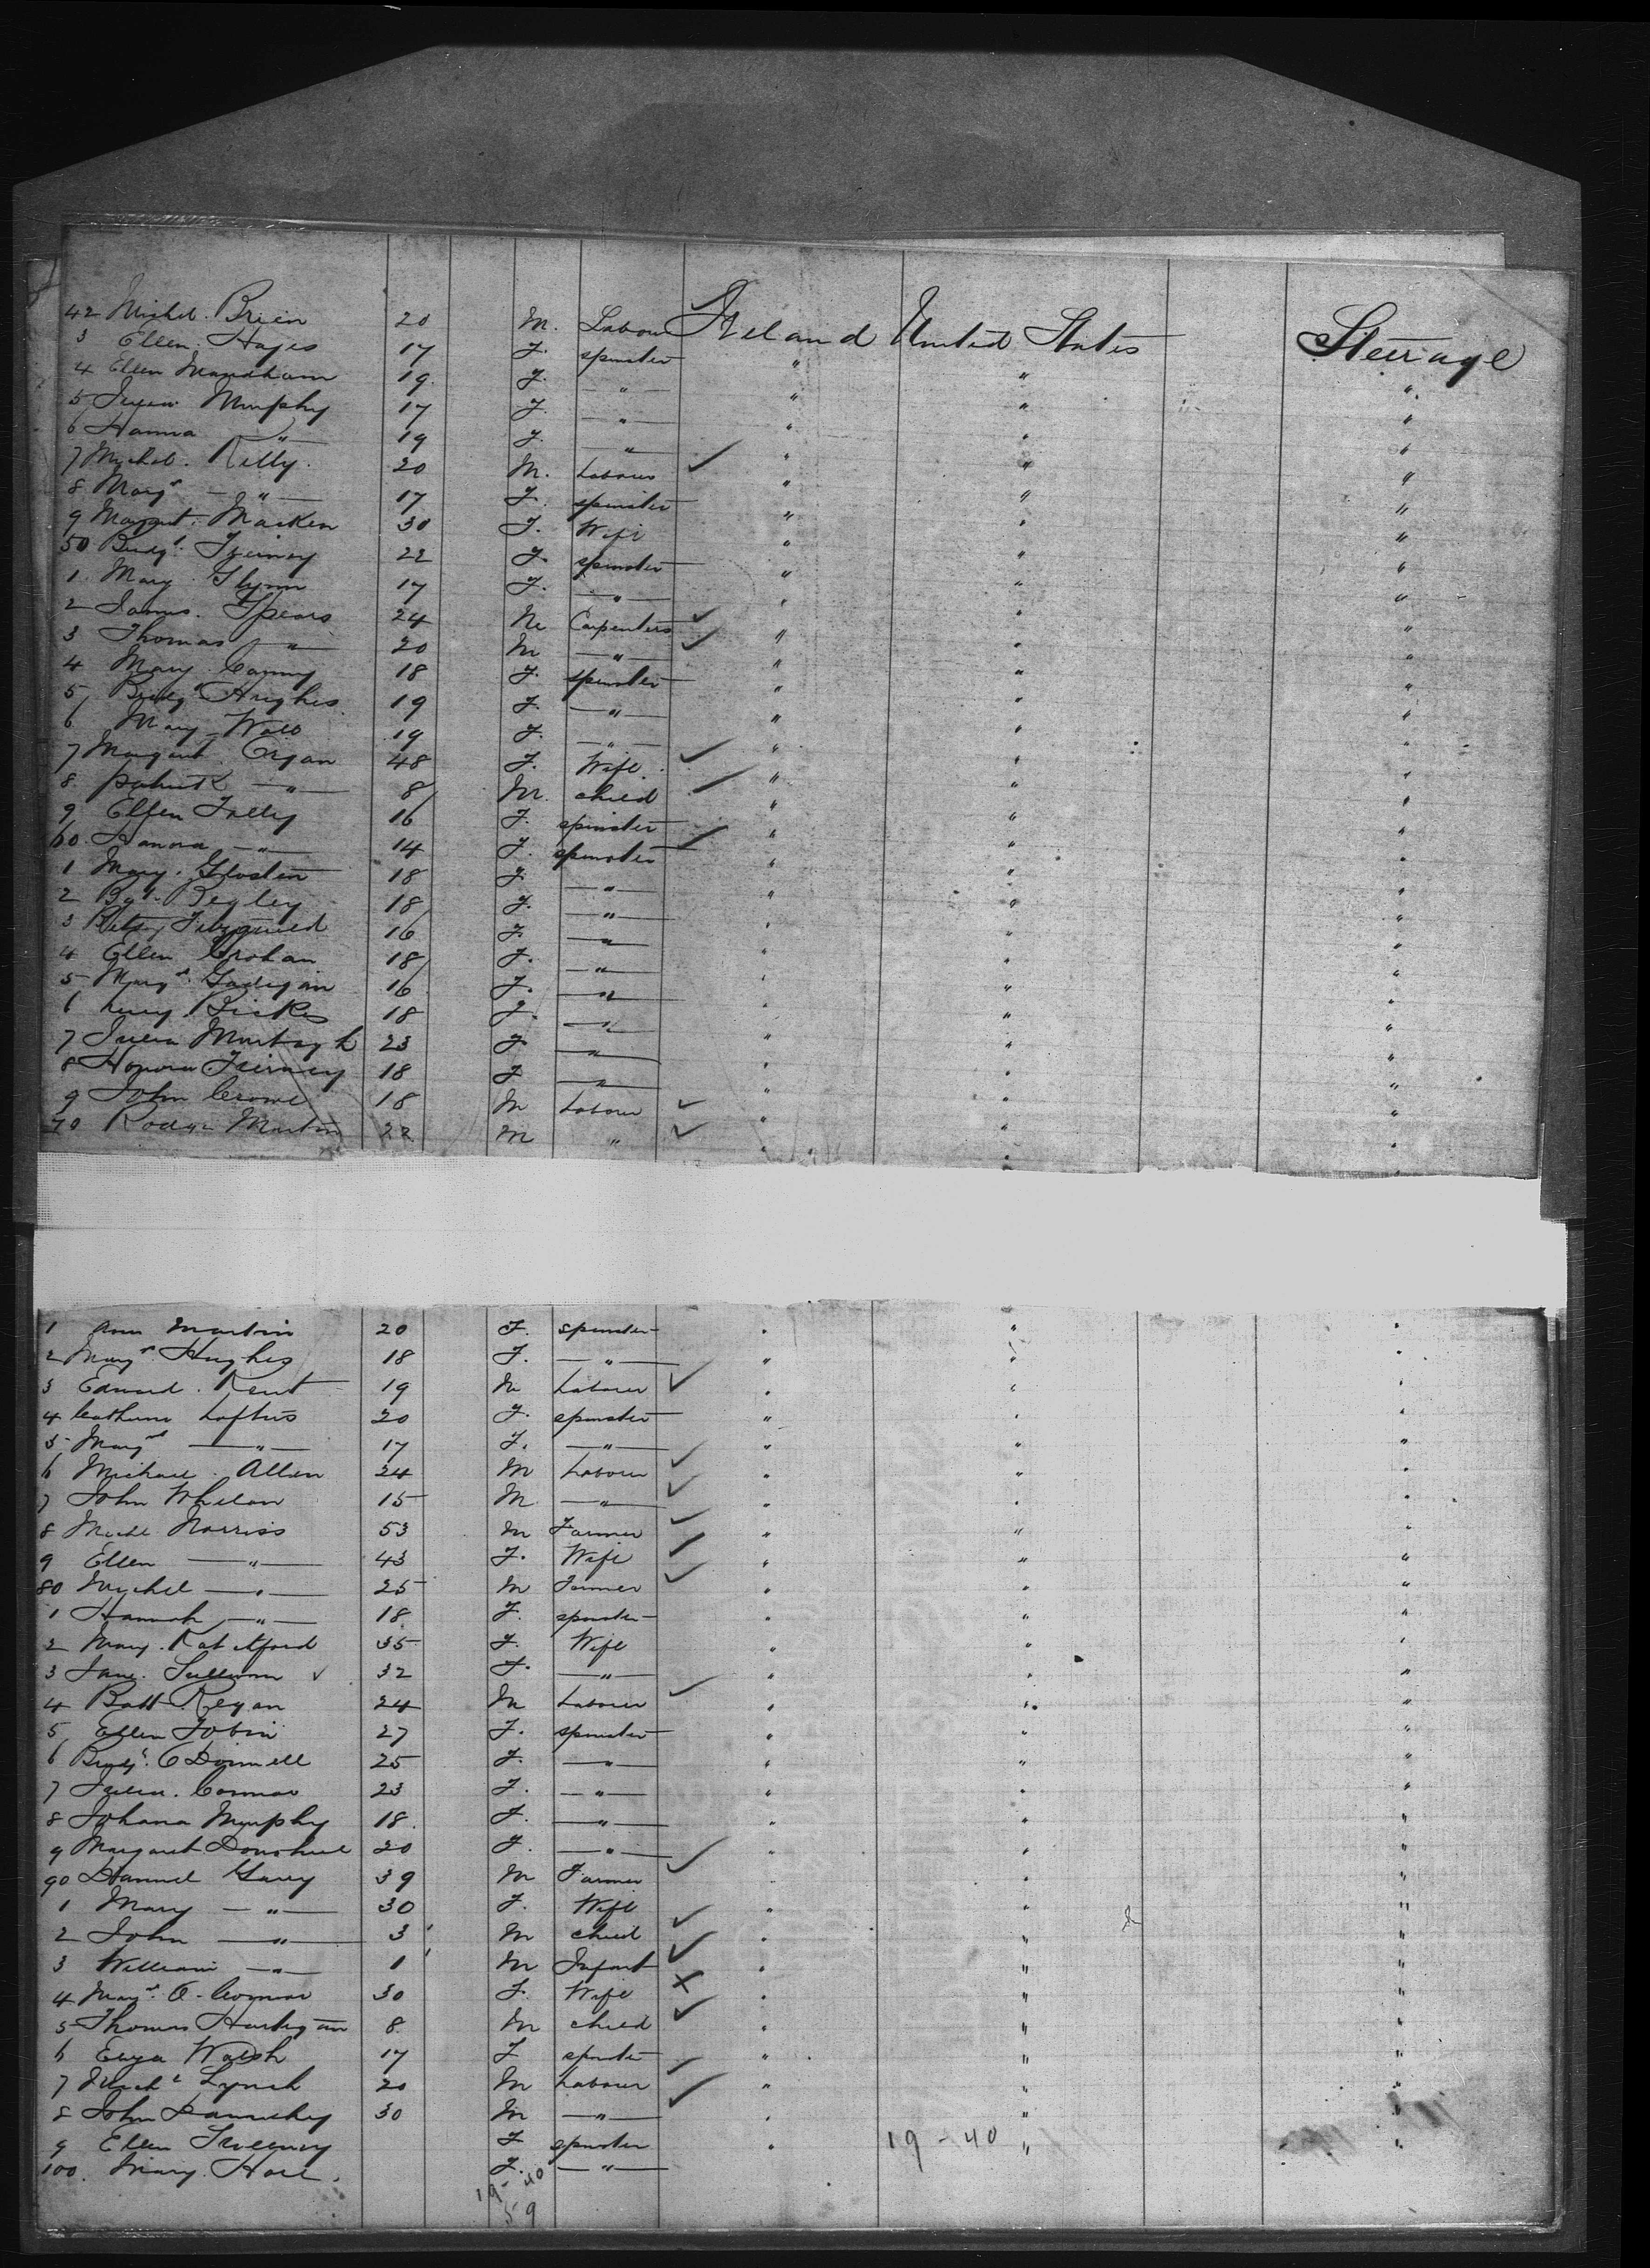 42 Michel. Brien 20 M. Labour Ireland United States Steerage
3 Ellen. Hayes 17 F. spinster " " "
4 Ellen 19 F. — " — " " "
5 Julia Murphy 17 F. — " — " " "
6 Hanna — " — 19 F. — " — " " "
7 Michel. Kelly. 20 M. Labour ✓ " " "
8 Margt — " — 17 F. spinster " " "
9 Margret. Macken 30 F. Wife " " "
50 Bridgt. Tierney 22 F. spinster " " "
1. Mary Glynn 17 F. — " — " " "
2 James. Spears 24 M Carpenters ✓ " " "
3 Thomas — " — 20 M — " — ✓ " " "
4 Mary 18 F. spinster " " "
5 Bridgt Hughes 19 F. — " — " " "
6 Mary Wall 19 F. — " — " " "
7 Margaret Cryan 48 F. Wife ✓ " " "
8. Patrick — " — 8 M. child ✓ " " "
9 Ellen 16 F. spinster " " "
60. Hanora — " — 14 F. spinster ✓ " " "
1 Mary. 18 F — " — " " "
2 Bgt. Begley 18 F. — " — " " "
3 Fitzgerald 16 F — " — " " "
4 Ellen Crohan 18 F. — " — " " "
5 Margt. Gadigan 16 F. — " — " " "
6 18 F. — " — " " "
7 Julia Murtagh 23 F — " — " " "
8 Honora Tierney 18 F — " — " " "
9 John Crowe 18 M Labour ✓ " " "
70 Martin 22 M " ✓ " " "
1 Ann Martin 20 F. spinster " " "
2 Margt. Hughes 18 F. — " — " " "
3 Edward. Kent 19 M Labourer ✓ " " "
4 Loftus 20 F. spinster " " "
5 Margret — " — 17 F. — " — " " "
6 Michael. Allen 24 M Labour ✓ " " "
7 John Whelan 15 M — " — ✓ " " "
8 Michl. Norriss 53 M Farmer ✓ " " "
9 Ellen — " — 43 F. Wife ✓ " " "
80 Michel — " — 25 M Farmer ✓ " " "
1 Hannah — " — 18 F. spinster " " "
2 Mary. 35 F. Wife " " "
3 Jane. Sullivan ✓ 32 F. — " — " " "
4 Batt Regan 24 M Labourer ✓ " " "
5 Ellen Tobin 27 F. spinster " " "
6 Bridgt. O Donnell 25 F. — " — " " "
7 Julia. Connor 23 F. — " — " " "
8 Johana Murphy 18. F. — " — " " "
9 Margaret Donohue 20 F. — " — " " "
90 Daniel Garvy 39 M Farmer ✓ " " "
1 Mary — " — 30 F. Wife " " "
2 John — " — 3 M child ✓ " " "
3 William — " — 1 M Infant ✓ " " "
4 Margt. O. Connor 30 F. Wife X " " "
5 Thomas Hartigan 8. M child ✓ " " "
6 Eliza Walsh 17 F spinster " " "
7 Michl Lynch 20 M Labour ✓ " " "
8 John 30 M — " — ✓ " " "
9 Ellen Sweeney F spinster " 19 - 40 " "
100. Mary. F. — " —
19 - 40
59